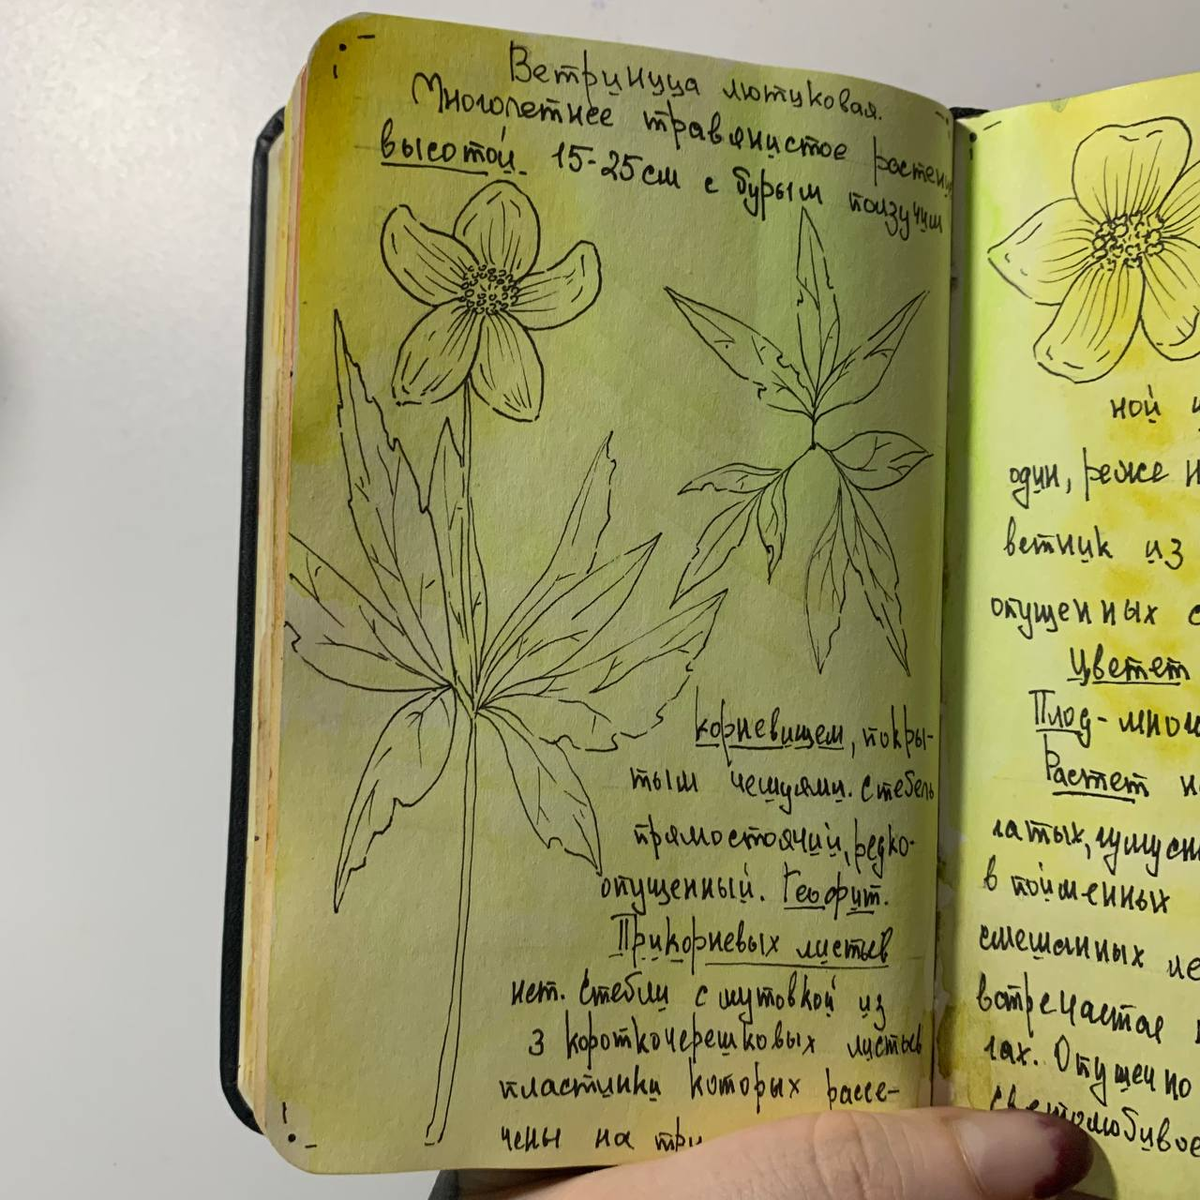 Ветриница лютиковая.
Многолетнее травянистое растени
высотой 15-25см с бурым ползучим
корневищем, покры-
тым чешуями. Стебель
прямостоячий, редко-
опущенный. Геофит.
Прикорневых листьев
нет. Стебли с мутовкой из
3 короткочерешковых листьев
пластинки которых рассе-
чены на три
ной
один, реже н
ветник из
опущенных с
Цветет
Плод - мног
Растет
гатых, гумусн
в пойменных
смешанных ле
встречается
лах. Опушено
светолюбивое